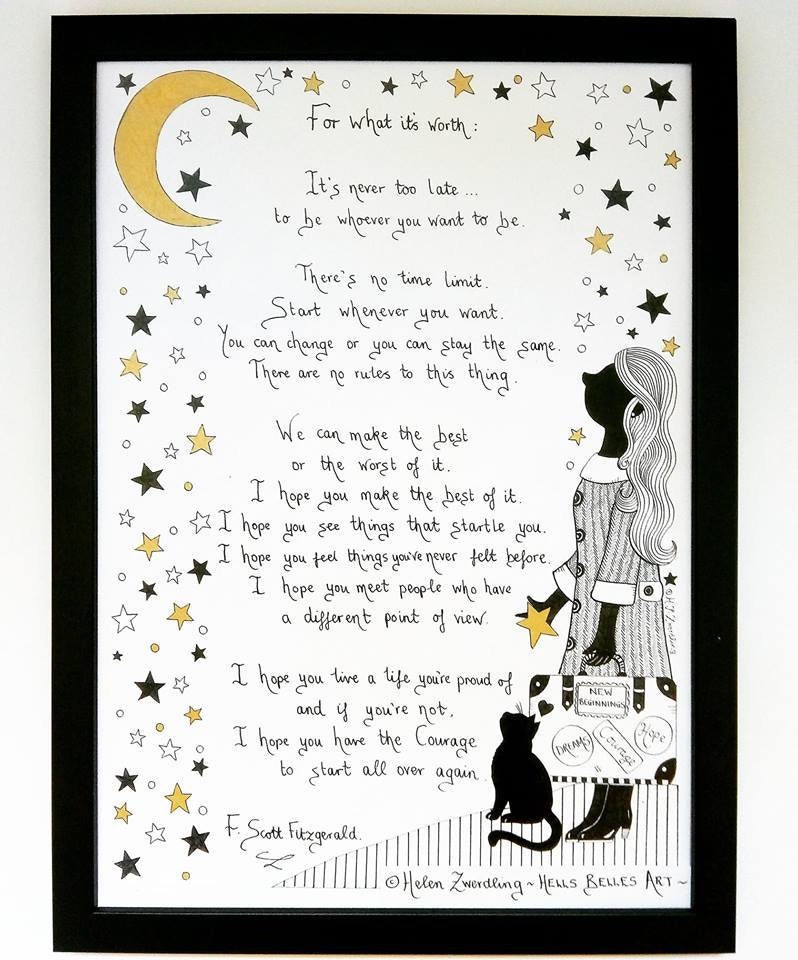 For what it's worth :
It's never too late ...
to be whoever you want to be.
There's no time limit.
Start whenever you want.
You can change or you can stay the same.
There are no rules to this thing.
We can make the best
or the worst of it.
I hope you make the best of it.
I hope you see things that startle you.
I hope you feel things you've never felt before.
I hope you meet people who have
a different point of view.
I hope you live a life you're proud of
and if you're not,
I hope you have the Courage
to start all over again.
F. Scott Fitzgerald.
NEW
BEGINNINGS
DREAMS
Courage
Hope
©Helen Zwerdling ~ HELLS BELLES ART ~